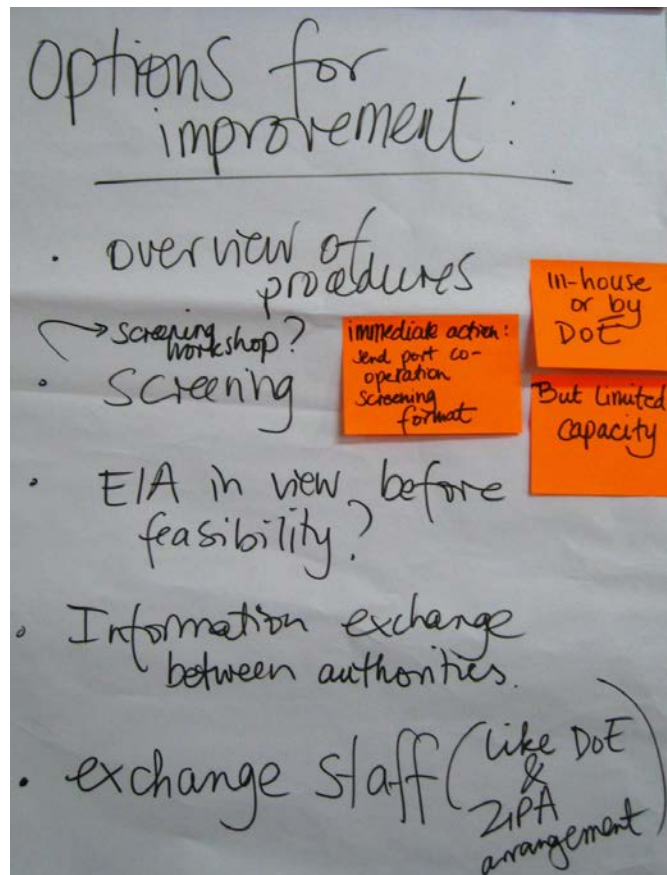 Options for
improvement :
• overview of
procedures
screening
workshop?
• Screening
immediate action:
send port co-
operation
screening
format
In-house
or by
DoE
But limited
capacity
• EIA in view before
feasibility?
• Information exchange
between authorities.
• exchange staff (like DoE
&
ZIPA
arrangement)